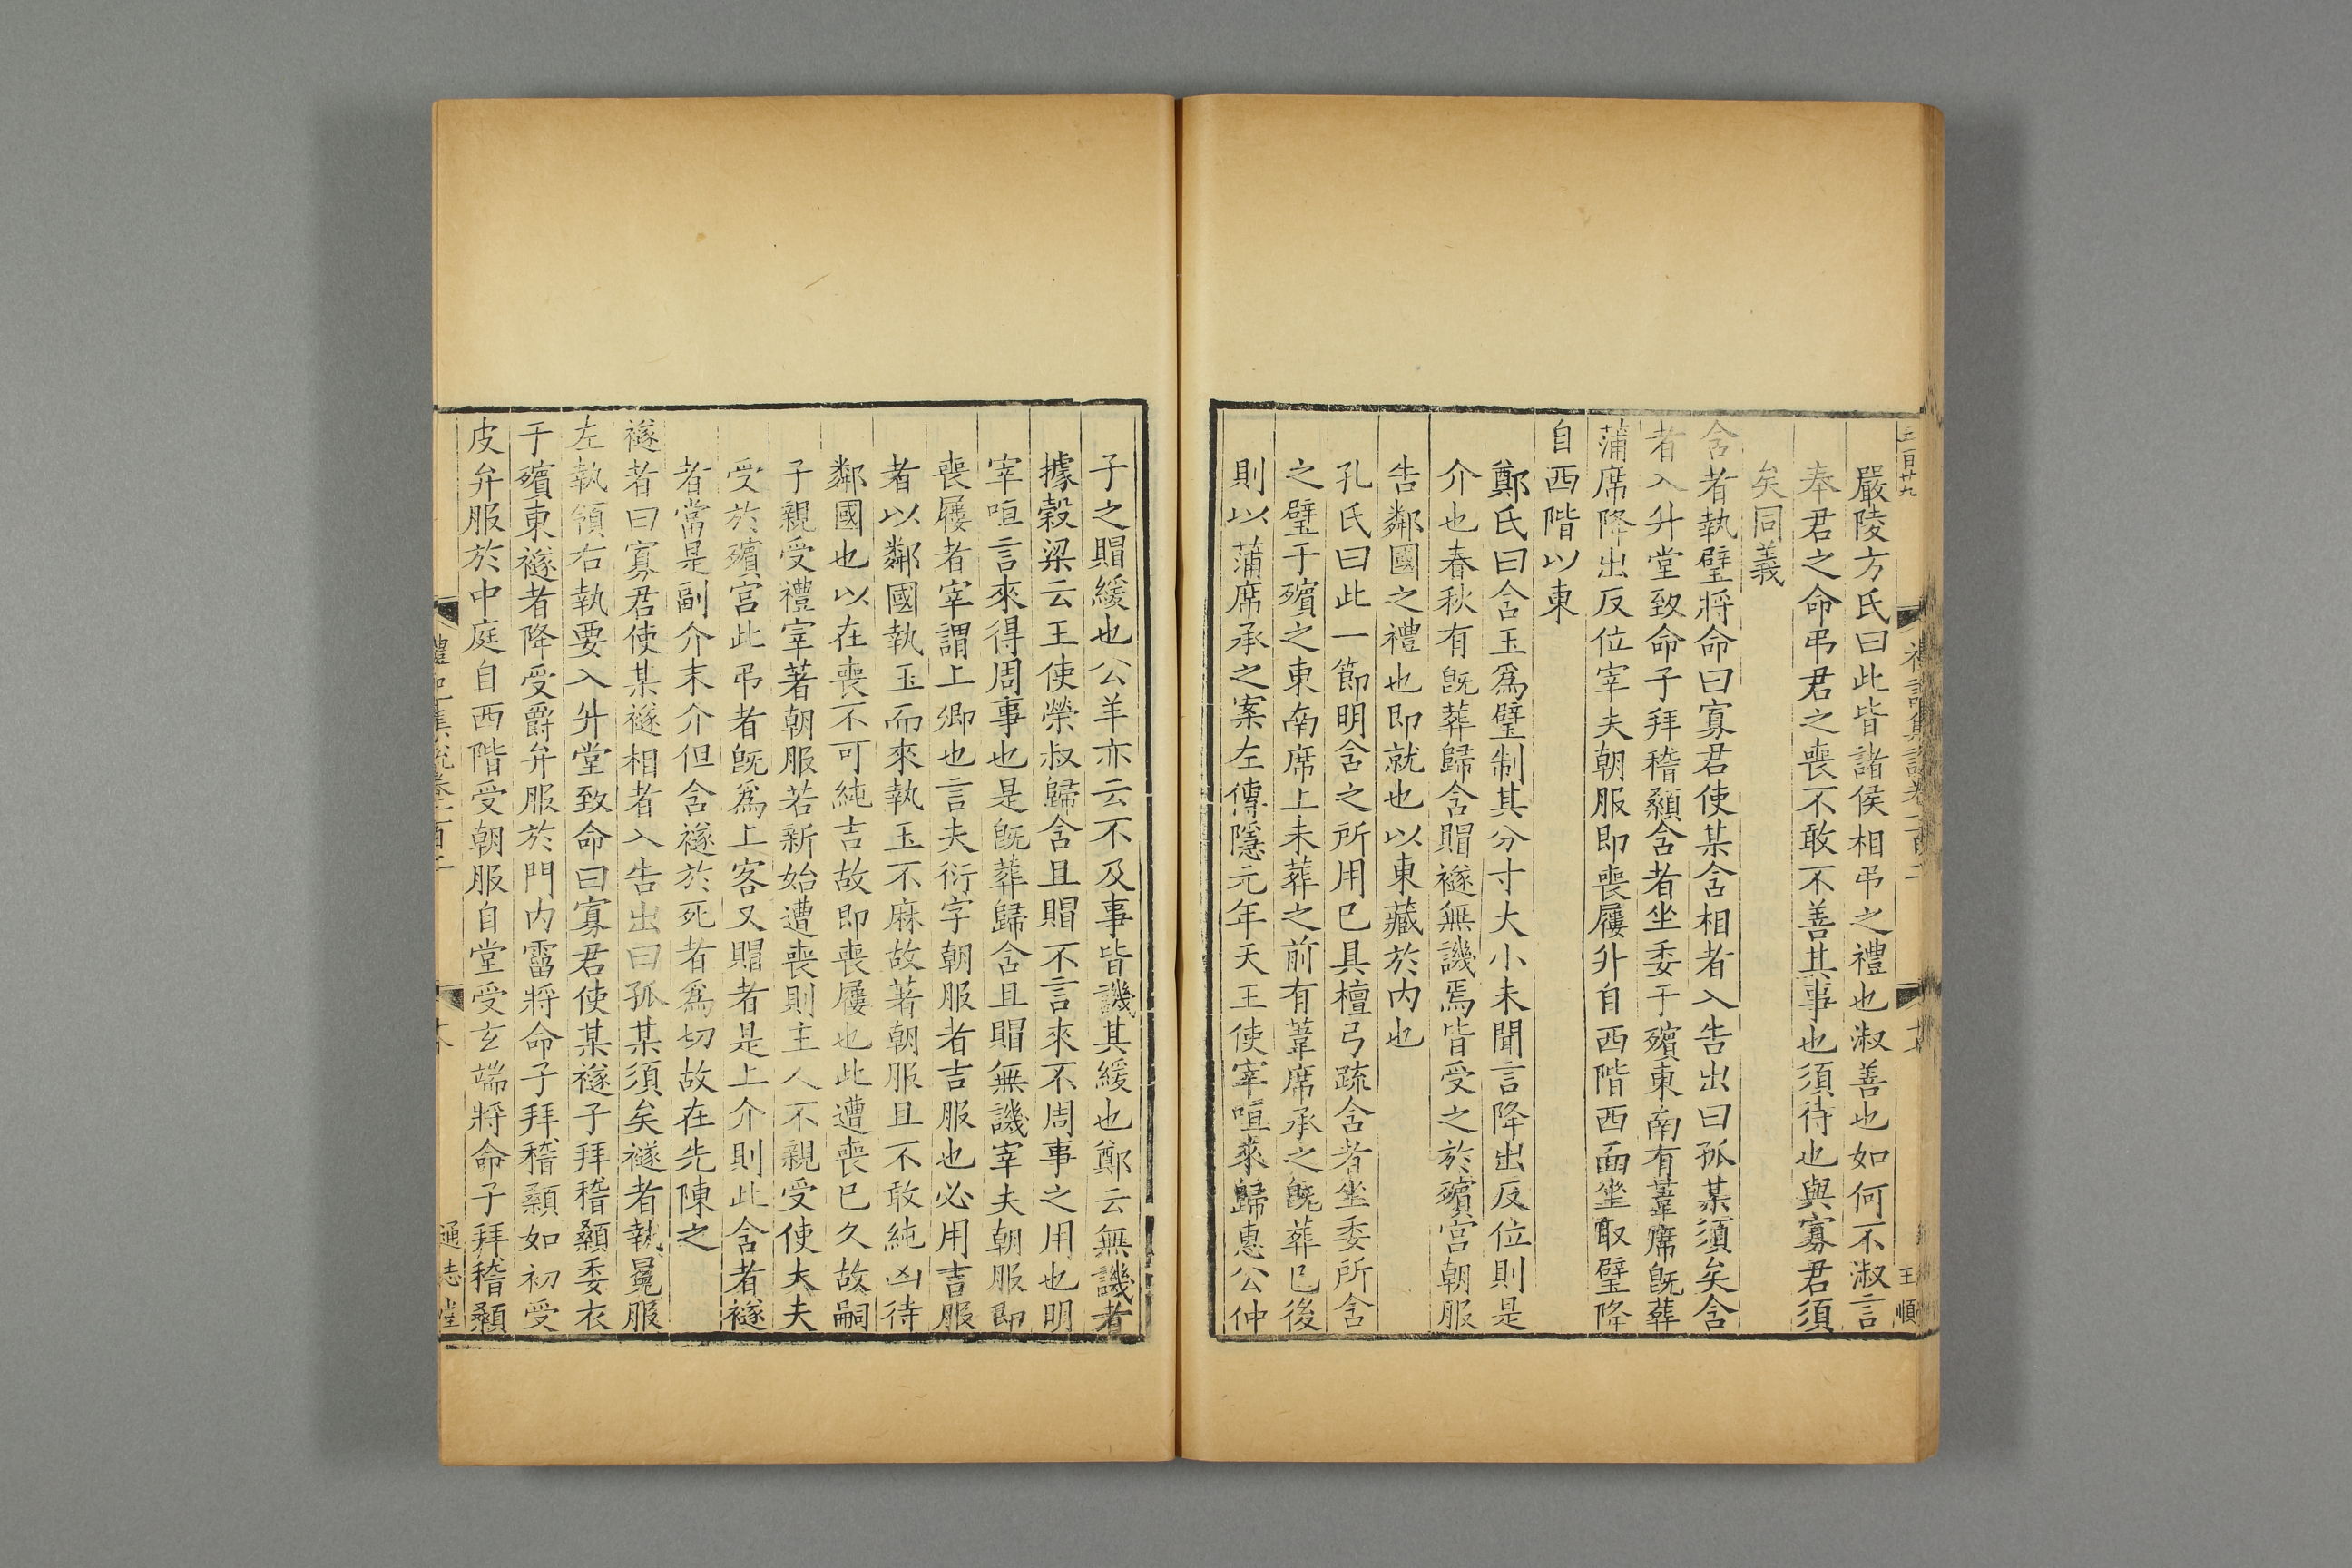 嚴陵方氏曰此皆諸侯相弔之禮也淑善也如何不淑言
奉君之命弔君之喪不敢不善其事也須待也與寡君須
矣同義
含者執璧將命曰寡君使某含相者入告出曰孤某須矣含
者入升堂致命子拜稽顙含者坐委于殯東南有葦席旣葬
蒲席降出反位宰夫朝服卽喪屨升自西階西面坐取璧降
自西階以東
鄭氏曰含玉爲璧制其分寸大小未聞言降出反位則是
介也春秋有旣葬歸含賵襚無譏焉皆受之於殯宮朝服
告鄰國之禮也卽就也以東藏於內也
孔氏曰此一節明含之所用已具檀弓疏含者坐委所含
之璧于殯之東南席上未葬之前有葦席承之旣葬已後
則以蒲席承之案左傳隱元年天王使宰咺來歸惠公仲
子之賵緩也公羊亦云不及事皆譏其緩也鄭云無譏者
據穀梁云王使榮叔歸含且賵不言來不周事之用也明
宰咺言來得周事也是旣葬歸含且賵無譏宰夫朝服卽
喪屨者宰謂上卿也言夫衍字朝服者吉服也必用吉服
者以鄰國執玉而來執玉不麻故著朝服且不敢純凶待
鄰國也以在喪不可純吉故卽喪屨也此遭喪已久故嗣
子親受禮宰著朝服若新始遭喪則主人不親受使大夫
受於殯宮此弔者旣爲上客又賵者是上介則此含者襚
者當是副介末介但含襚於死者爲切故在先陳之
襚者曰寡君使某襚相者入告出曰孤某須矣襚者執冕服
左執領右執要入升堂致命曰寡君使某襚子拜稽顙委衣
于殯東襚者降受爵弁服於門內霤將命子拜稽顙如初受
皮弁服於中庭自西階受朝服自堂受玄端將命子拜稽顙
通志堂